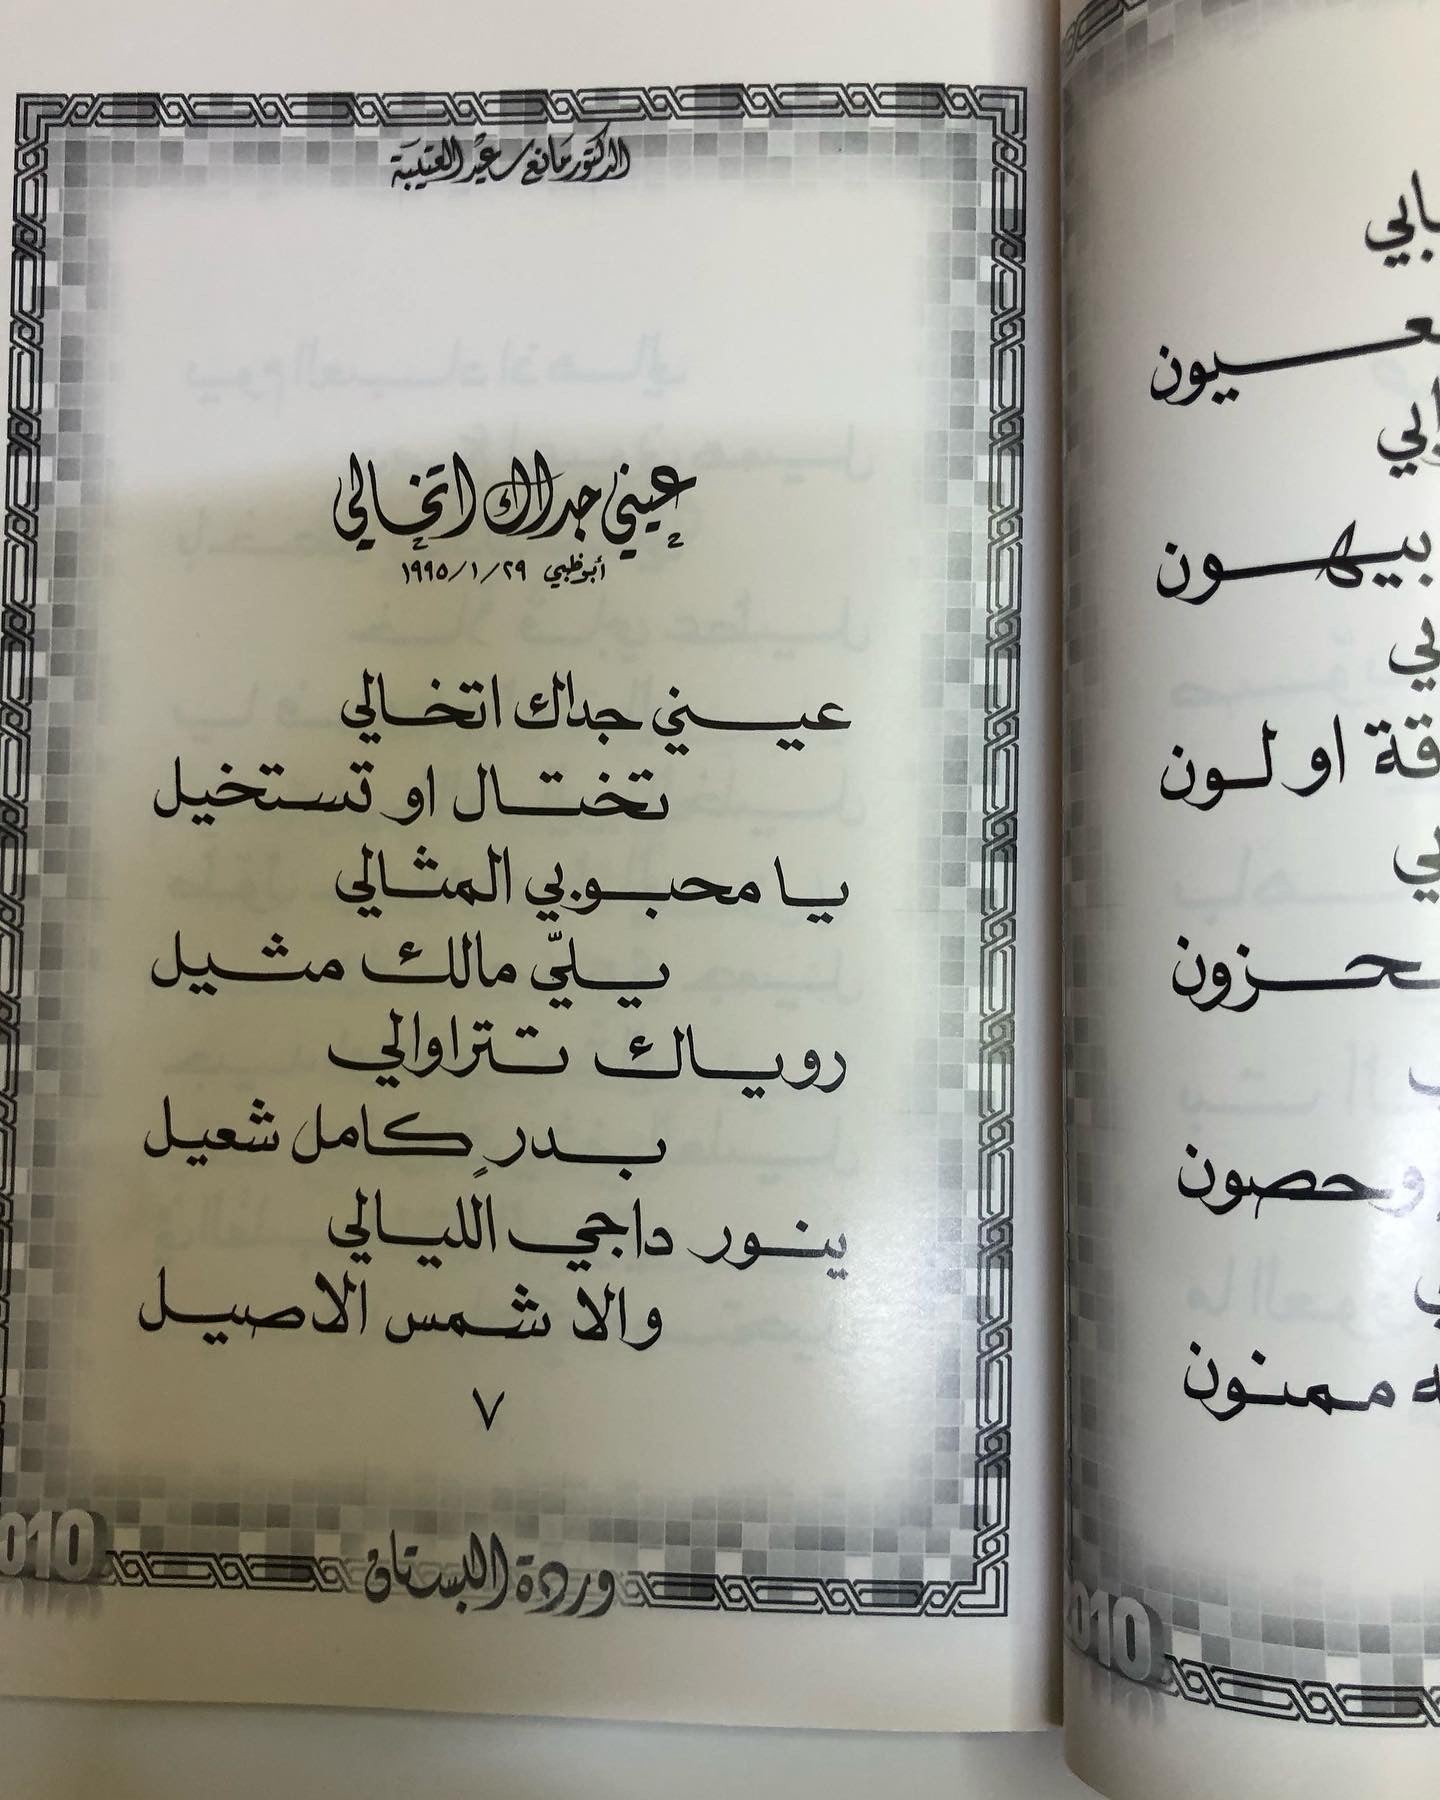 الدكتور مانع سعيد العتيبة
عيني جداك اتخالي
أبوظبي ٢٩/١/١٩٩٥
عيني جداك اتخالي
تختال او تستخيل
يا محبوبي المثالي
يليّ مالك مثيل
روياك تتراوالي
بدرٍ كامل شعيل
ينور داجي الليالي
والا شمس الاصيل
٧
وردة البستان
010
بيهون
قة او لون
وحصون
ه ممنون
2010